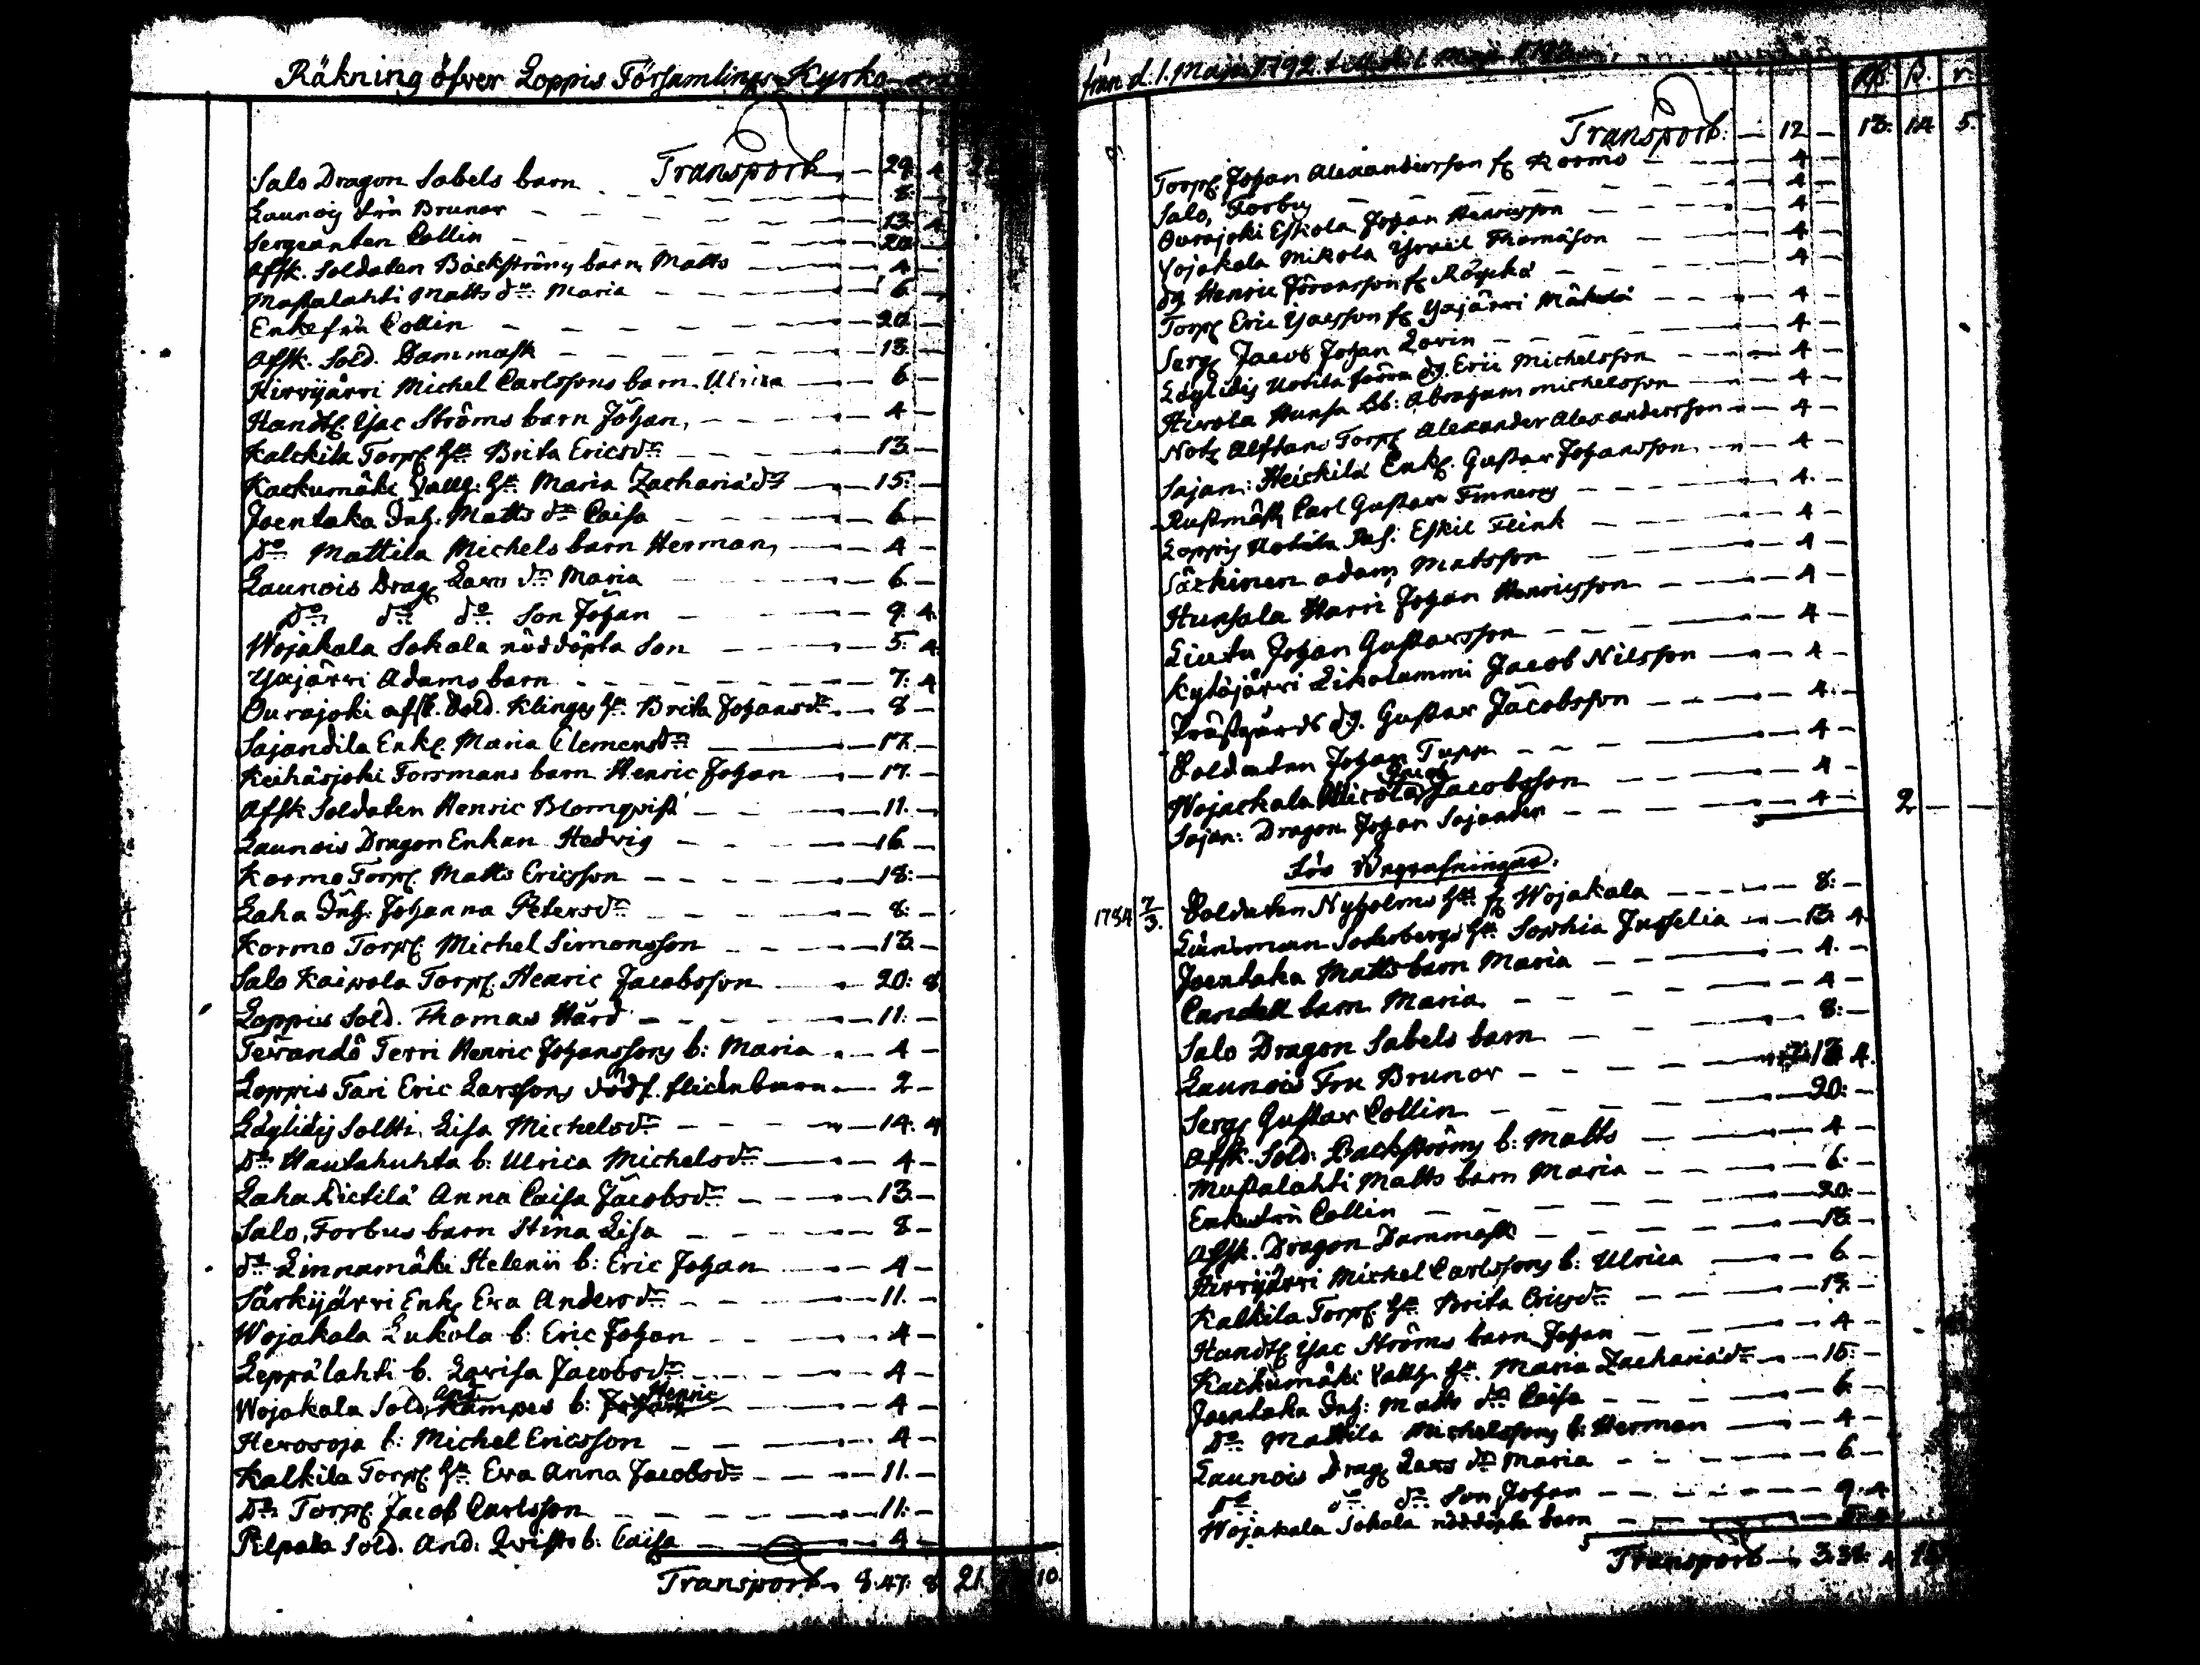 Räkning öfver Loppis Församlings Kyrko
Transport — 29. 4
Salo Dragon Sabels barn — 8. —
Launois Fru Brunor — 13. 4
Sergeanten Collin — 20 —
Afsk. Soldaten Bäckströms barn Matts — 4 —
Mustalahti Matts do Maria — 6. —
Enkefru Collin — 20 —
Afsk. Sold. Dammask — 13. —
Hirvijärvi Michel Carlssons barn Ulrica — 6. —
Handtl. Isac Ströms barn Johan — 4 —
Kalckila Torp. hu Brita Ericsdr — 13. —
Kackumäki Vallh. hu Maria Zachariædr — 15. —
Joentaka Inh. Matts dr Caisa — 6. —
do Mattila Michels barn Herman — 4 —
Launois Drag. Lars dr Maria — 6. —
do do do Son Johan — 9. 4
Wojakala Sokala nöddöpta Son — 5. 4
Yajärvi Adams barn — 7. 4
Ourajoki afsk. Sold. Klinges hu. Brita Johansdr — 8 —
Sajandila Enk. Maria Clemensdr — 17. —
Keihäsjoki Forsmans barn Henric Johan — 17. —
Afsk Soldaten Henric Blomqvist — 11. —
Launois Dragon Enkan Hedvig — 16. —
Kormo Torp. Matts Ericsson — 18. —
Laha Inh. Johanna Petersdr — 8. —
Kormo Torp. Michel Simonsson — 13. —
Salo Kaivola Torp. Henric Jacobsson — 20: 8
Loppis Sold. Thomas Hård — 11. —
Terändö Terri Henric Johanssons b: Maria — 4 —
Loppis Tari Eric Larssons dödf. flickebarn — 2 —
Läylidis Soltti Lisa Michelsdr — 14. 4
do Hautahuhta b: Ulrica Michelsdr — 4 —
Laha Anna Caisa Jacobsdr — 13. —
Salo, Forbus barn Stina Lisa — 8 —
do Linnamäki Helenii b: Eric Johan — 4 —
Särkijärvi Enk. Eva Andersdr — 11. —
Wojakala Lukola b: Eric Johan — 4 —
Leppälahti b. Lovisa Jacobsdr — 4 —
Wojakala Sold. And. Kämpes b: Henric — 4 —
Herosoja b: Michel Ericsson — 4 —
Kalkila Torp. hu Eva Anna Jacobsdr — 11. —
do Torp. Jacob Carlsson — 11. —
Pilpala Sold. And. Qvists b: Caisa — 4 —
Transport 8.47: 8 21. 10.
från d. 1. Maji 1792 till d. 1. Maji
Transport: — 12 — 13: 14 5.
Torp. Johan Alexandersson fr. Kormo — 4 —
Salo, Forbus — 4 —
Ourajoki Eskola Johan Henricsson — 4 —
Vojakala Mikola Israel Thomasson — 4 —
dg Henric Göransson fr. Räyskä — 4 —
Torp. Eric Isacsson fr. Yajärvi Mäkelä — 4 —
Serg. Jacob Johan Lorin — 4 —
Läylidis Uotila dg. Eric Michelsson — 4 —
Hirvola Hunsa Bb: Abraham Michelsson — 4 —
Alftans Torp. Alexander Alexandersson — 4 —
Sajan: Heickilä Enk. Gustav Johansson — 4 —
Rustmäst. Carl Gustav — 4. —
Loppis Uotila Eskil Flink — 4 —
Särkinen Adam Matsson — 4 —
Hunsala Harri Johan Henricsson — 4 —
Liuta Johan Gustavsson — 4 —
Kytäjärvi Jacob Nilsson — 4 —
Prästgårds dg. Gustav Jacobsson — 4. —
Soldaten Johan Tupp — 4 —
Wojackala Micola Jacob Jacobsson — 4 —
Sajan: Dragon Johan Sajander — 4 — 2 — —
För Begrafningar.
1784 7/3. Soldaten Nyholms hu fr. Wojakala — 8: —
Länsman Söderbergs hu Sophia — 13. 4
Joentaka Matts barn Maria — 4. —
barn Maria — 4 —
Salo Dragon Sabels barn — 8: —
Launois Fru Brunor — 13. 4.
Serg. Gustav Collin — 20: —
Afsk. Sold. Bäckströms b: Matts — 4 —
Mustalahti Matts barn Maria — 6. —
Enkefru Collin — 20. —
Afsk. Dragon Dammask — 13. —
Hirvijärvi Michel Carlssons b: Ulrica — 6. —
Kalkila Torp. hu Brita Ericsdr — 13. —
Handtl. Isac Ströms barn Johan — 4 —
Kackumäki Vallh. hu. Maria Zachariædr — 15: —
Joentaka Inh: Matts dr Caisa — 6. —
do Mattila Michelssons b: Herman — 4 —
Launois Drag. Lars dr Maria — 6. —
do do do Son Johan — 9. 4
Wojakala Sokala nöddöpta barn — 5. 4
Transport — 3.38: 4